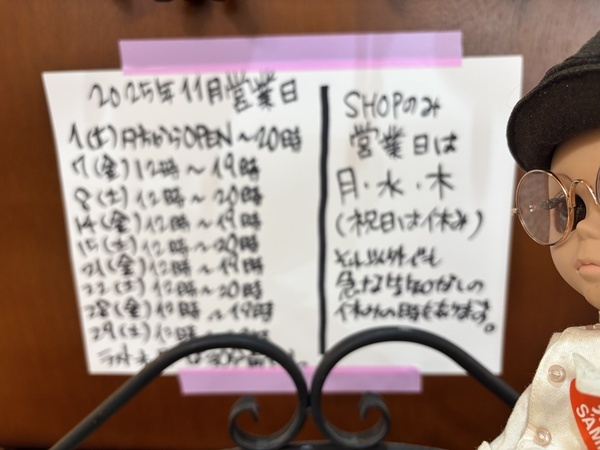 2025年11月営業日
1(土)夕方からOPEN~20時
7(金)12時~19時
8(土)12時~20時
14(金)12時~19時
15(土)12時~20時
21(金)12時~19時
22(土)12時~20時
28(金)12時~19時
29(土)12時~
SHOPのみ
営業日は
月・水・木
(祝日は休み)
それ以外でも
急なお知らせなしの
休みの時もあります。
SAM